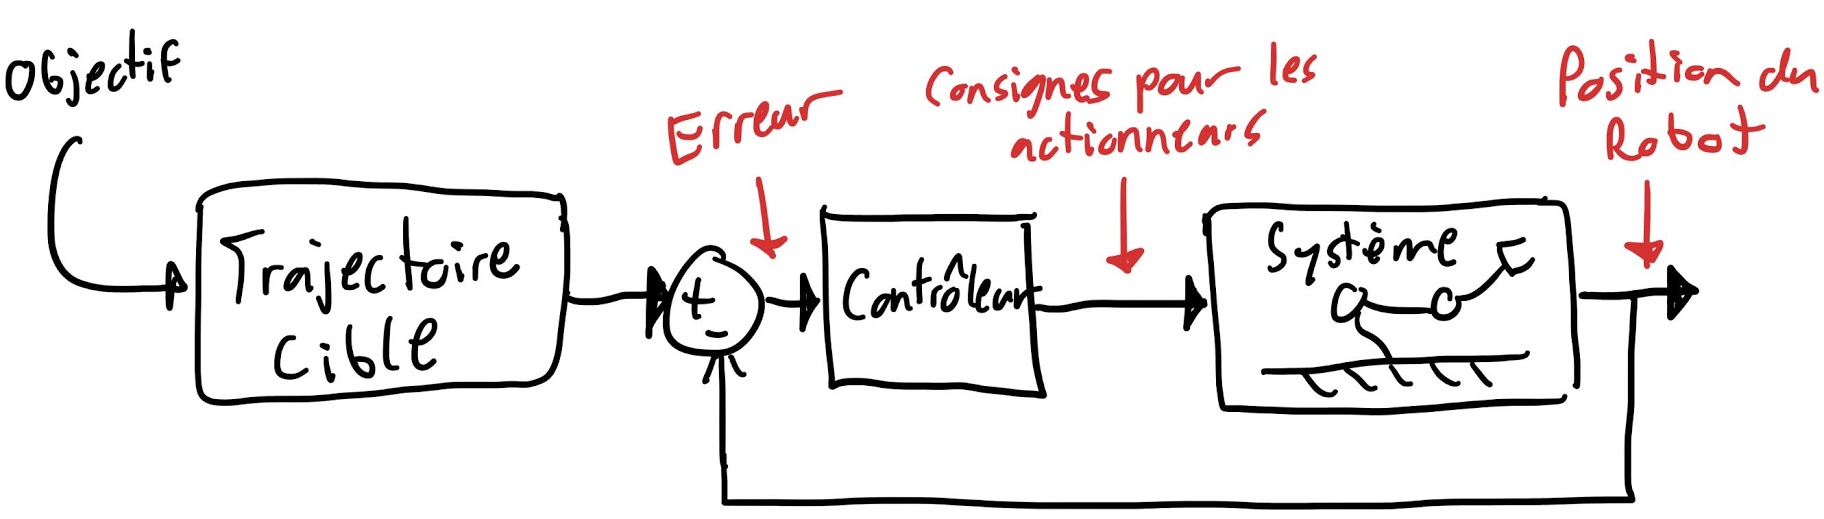 Objectif
Trajectoire
Cible
Erreur
+
-
Contrôleur
Consignes pour les
actionneurs
Système
Position du
Robot